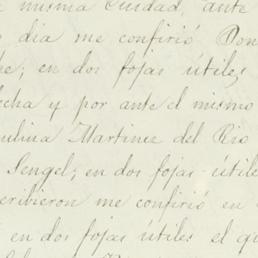 misma Ciudad, ante
dia me confirió Don
en dos fojas útiles,
fecha y por ante el mismo
Martinez del Rio
Sengel; en dos fojas útiles
me confirió en
en dos fojas útiles el